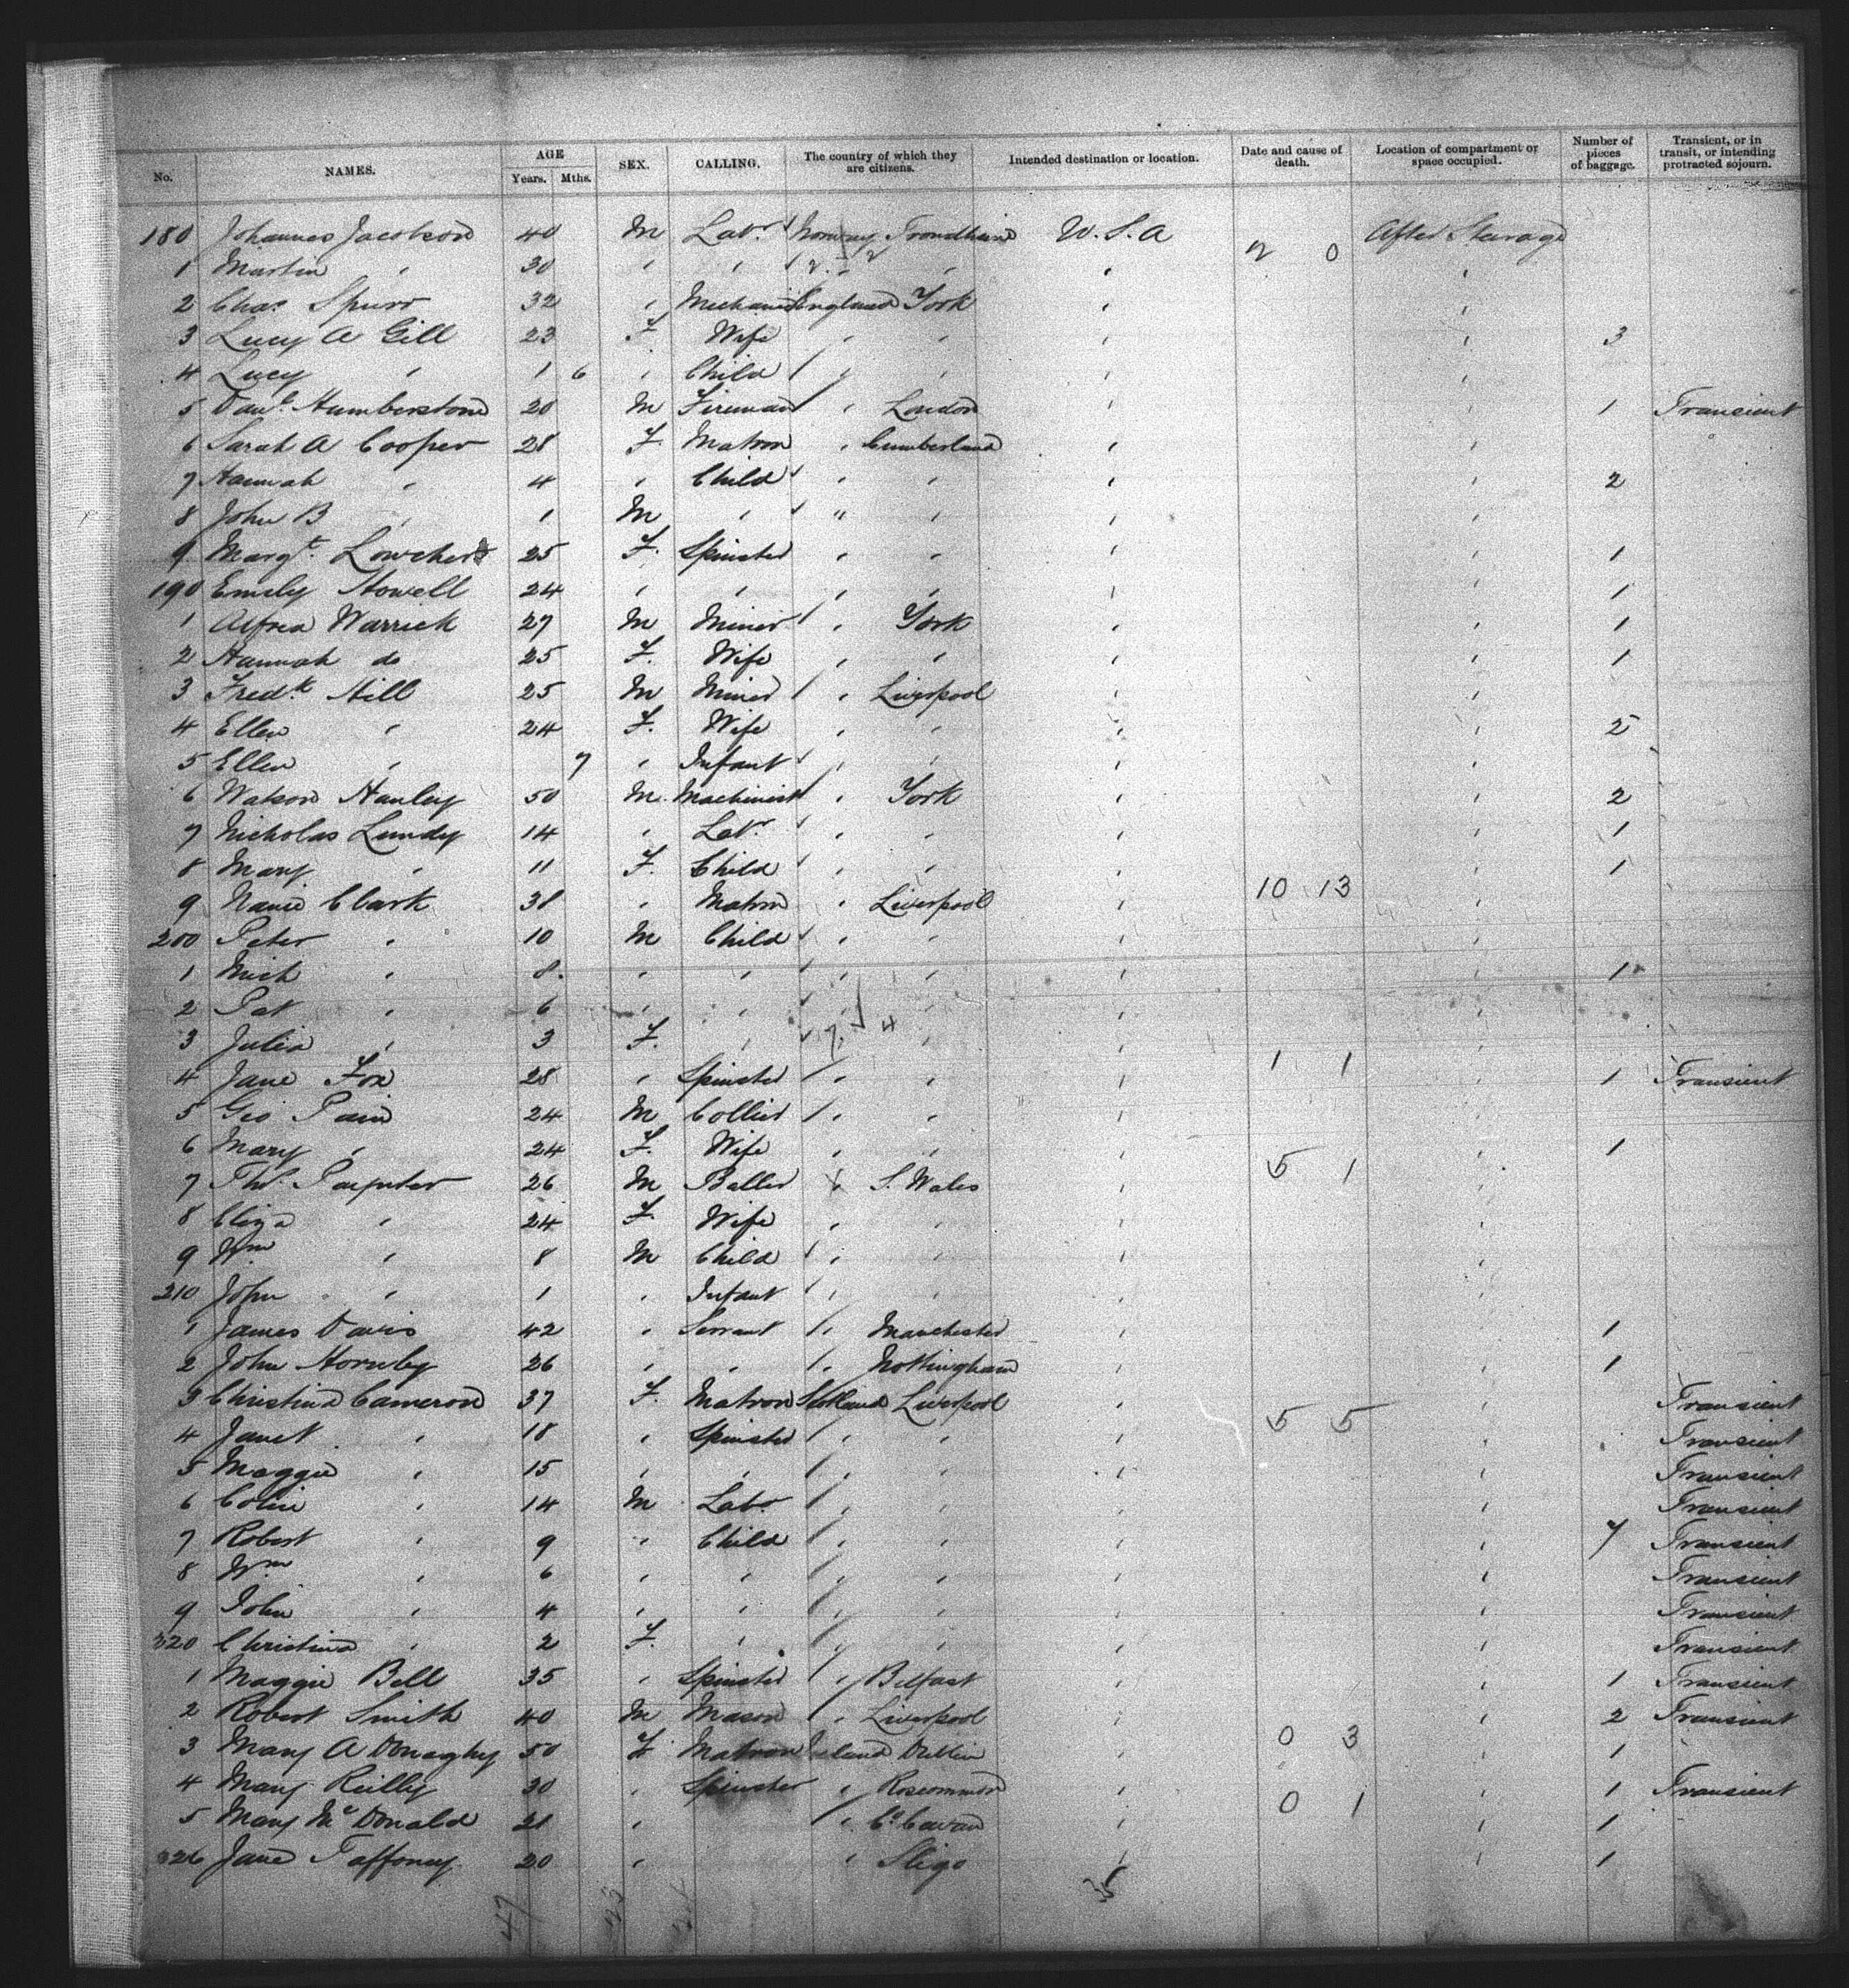 No. NAMES. AGE Years. Mths. SEX. CALLING. The country of which they are citizens. Intended destination or location. Date and cause of death. Location of compartment or space occupied. Number of pieces of baggage. Transient, or in transit, or intending protracted sojourn.
180 Johannes Jacobson 40 M Labr Norway Trondheim U.S.A After Steerage
2 0
1 Martin " 30 " " " " " "
2 Chas Spurr 32 " Mechanic England York " "
3 Lucy A Gill 23 F Wife " " " " 3
4 Lucy " 1 6 " Child " " " "
5 Danl Humberstone 20 M Fireman " London " " 1 Transient
6 Sarah A Cooper 28 F. Matron " Cumberland " "
7 Hannah " 4 " Child " " " " 2
8 John B " 1 M " " " " "
9 Margt. 25 F. Spinster " " " " 1
190 Emily Howell 24 " " " " " " 1
1 Alfred Warrick 27 M Miner " York " " 1
2 Hannah do 25 F. Wife " " " " 1
3 Fredk Hill 25 M Miner " Liverpool " "
4 Ellen " 24 F. Wife " " " " 2
5 Ellen " 7 " Infant " " " "
6 Watson Hanley 50 M. Machinist " York " " 2
7 Nicholas Lundy 14 " Labr " " " " 1
8 Mary " 11 F. Child " " " " 1
10 13
9 Clark 38 " Matron " Liverpool " "
200 Peter " 10 M Child " " " "
1 Mich " 8 " " " " " " 1
2 Pat " 6 " " " " " "
7. 4
3 Julia " 3 F. " " " " "
1 1
4 Jane Fox 28 " Spinster " " " " 1 Transient
5 Geo Pain 24 M Collier " " " "
6 Mary " 24 F. Wife " " " " 1
5 1
7 Thos. Paynter 26 M " S. Wales " "
8 Eliza " 24 F. Wife " " " "
9 Wm " 8 M Child " " " "
210 John " 1 " Infant " " " "
1 James Davis 42 " Servant " Manchester " " 1
2 John Hornby 26 " " " Nottingham " " 1
3 Christina Cameron 37 F. Matron Scotland Liverpool " " Transient
5 5
4 Janet " 18 " Spinster " " " " Transient
5 Maggie " 15 " " " " " " Transient
6 Colin " 14 M Labr " " " " Transient
7 Robert " 9 " Child " " " " 7 Transient
8 Wm " 6 " " " " " " Transient
9 John " 4 " " " " " " Transient
220 Christina " 2 F. " " " " " Transient
1 Maggie Bell 35 " Spinster " Belfast " " 1 Transient
2 Robert Smith 40 M Mason " Liverpool " " 2 Transient
0 3
3 Mary A Donaghy 50 F Matron Ireland Dublin " " 1
4 Mary Reilly 30 " Spinster " Roscommon " " 1 Transient
0 1
5 Mary McDonald 21 " " Co Cavan " " 1
226 Jane Taffoney 20 " " Sligo " " 1
47 23 35